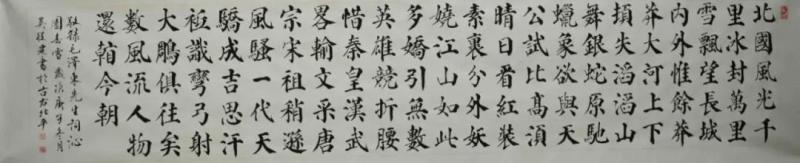 北國風光千
里冰封萬里
雪飄望長城
内外惟餘莽
莽大河上下
頓失滔滔山
舞銀蛇原馳
蠟象欲與天
公試比高須
晴日看紅裝
素裹分外妖
嬈江山如此
多嬌引無數
英雄競折腰
惜秦皇漢武
畧輸文采唐
宗宋祖稍遜
風騷一代天
驕成吉思汗
衹識彎弓射
大鵰俱往矣
數風流人物
還看今朝
敬錄毛澤東先生詞沁
園春雪歲次庚子冬月
書於古都北平